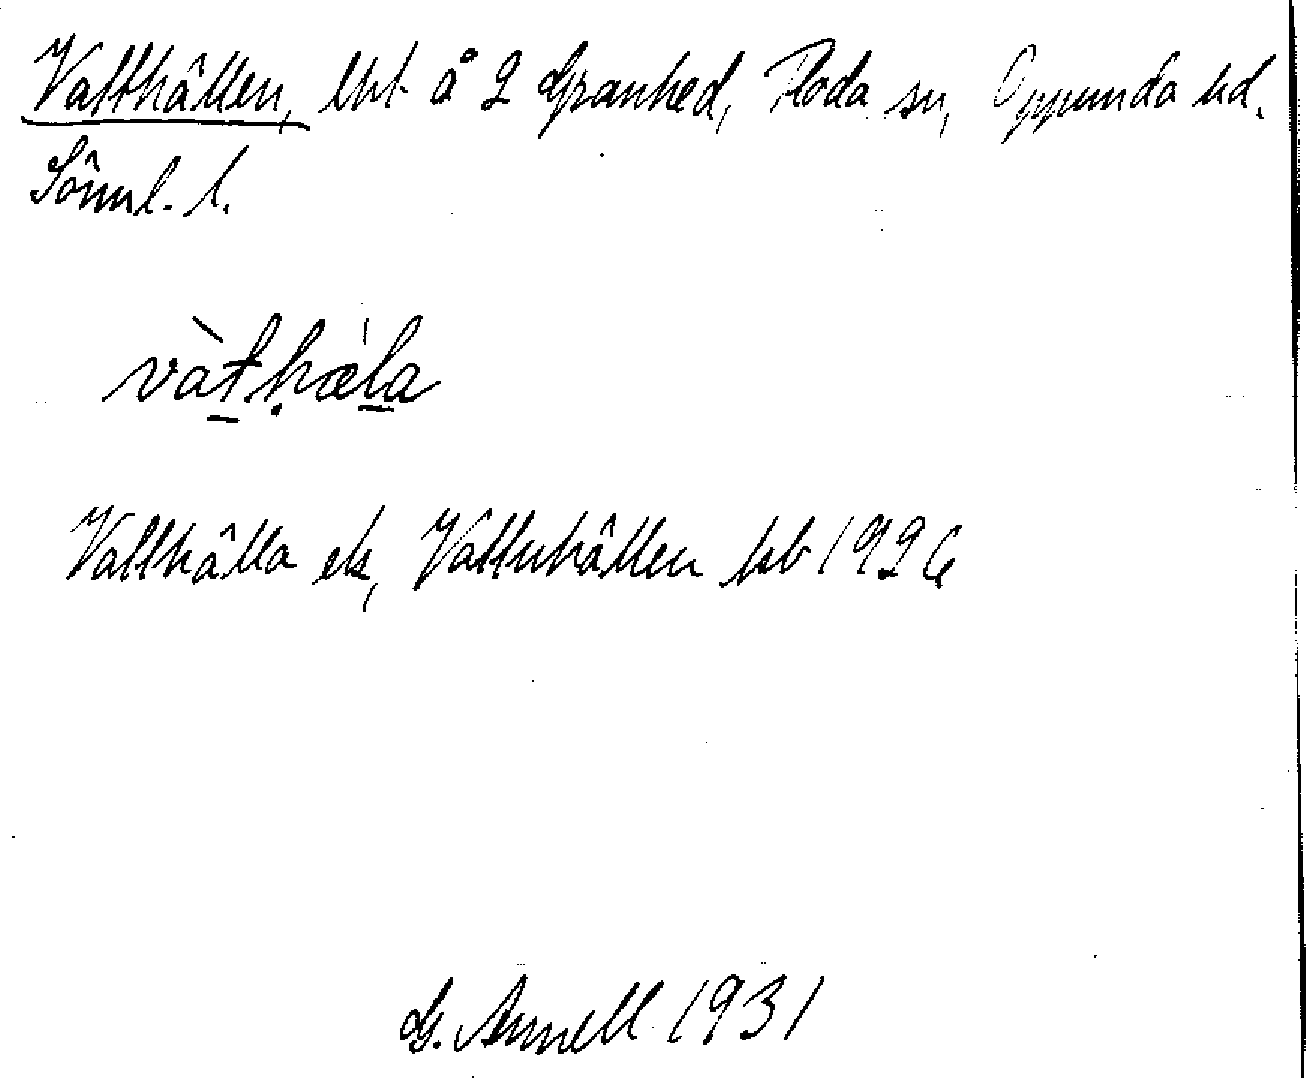 Vatthällen, lht å 2 Granhed, Floda sn, Oppunda hd.
Sörml. l.
vàt̠ḥæ̀l̠a
Vatthälla ek, Vattuhällen kb 1926
G. Annell 1931